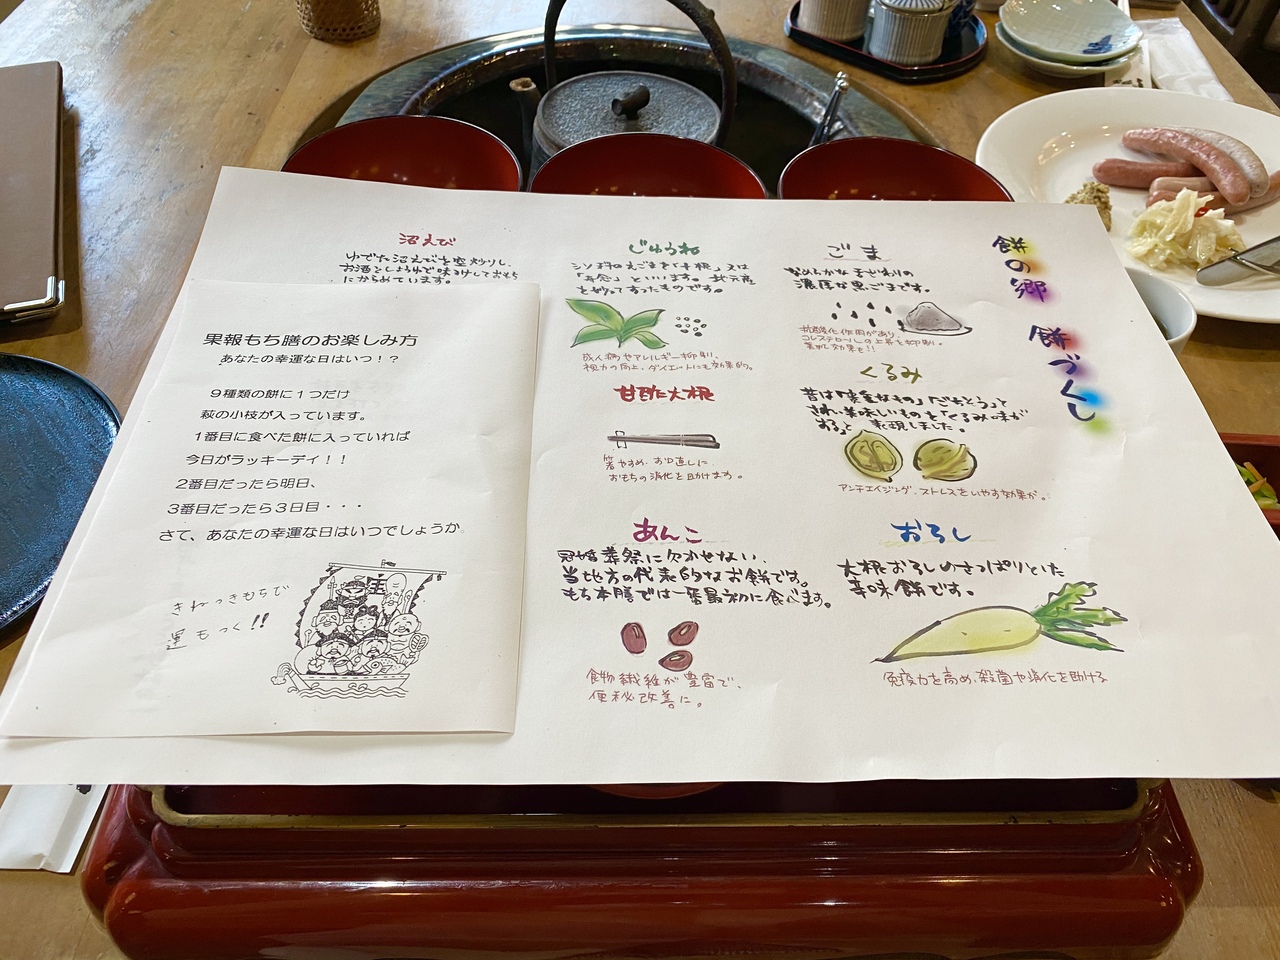 餅の郷
餅づくし
ごま
なめらかな舌ざわりの
濃厚な黒ごまです。
抗酸化作用があり
コレステロールの上昇を抑制。
美肌効果も!!
くるみ
昔は「貴重なもの」「ごちそう」と
され、美味しいものを「くるみ味が
する」と表現しました。
アンチエイジング、ストレスをいやす効果が。
おろし
大根おろしのさっぱりとした
辛味餅です。
免疫力を高め、殺菌や消化を助ける
じゅうね
シソ科のえごまを「十根」又は
といいます。地元産
を炒ってすったものです。
成人病やアレルギー抑制、
視力の向上、ダイエットにも効果的。
甘酢大根
箸やすめ、お口直しに
おもちの消化を助けます。
あんこ
冠婚葬祭に欠かせない、
当地方の代表的なお餅です。
もち本膳では一番最初に食べます。
食物繊維が豊富で、
便秘改善に。
沼えび
ゆでた沼えびを空炒りし、
お酒としょうゆで味つけしておもち
にからめています。
果報もち膳のお楽しみ方
あなたの幸運な日はいつ！？
9種類の餅に１つだけ
萩の小枝が入っています。
1番目に食べた餅に入っていれば
今日がラッキーデイ！！
2番目だったら明日、
3番目だったら３日目・・・
さて、あなたの幸運な日はいつでしょうか
きねつきもちで
運もつく!!